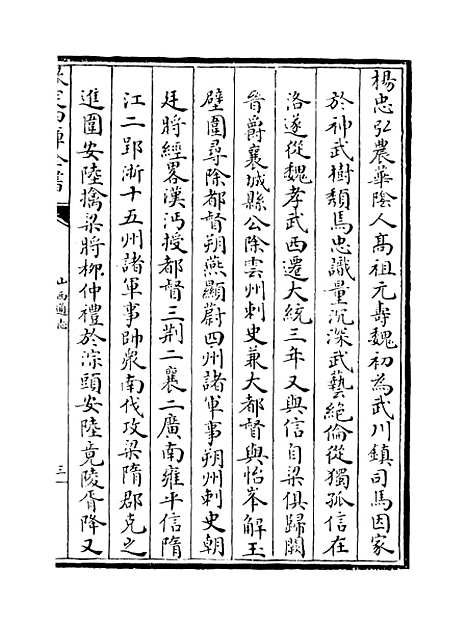 楊忠弘農華陰人高祖元壽魏初為武川鎮司馬因家
於神武樹頽馬忠識量沉深武藝絶倫從獨孤信在
洛遂從魏孝武西遷大統三年又與信自梁俱歸闕
晉爵襄城縣公除雲州刺史兼大都督與怡峯解玉
壁圍尋除都督朔燕顯蔚四州諸軍事朔州刺史朝
廷將經畧漢沔授都督三荆二襄二廣南雍平信隋
江二郢淅十五州諸軍事帥衆南伐攻梁隋郡克之
進圍安陸擒梁將栁仲禮於淙頭安陸竟陵胥降又
欽定四庫全書
山西通志
三